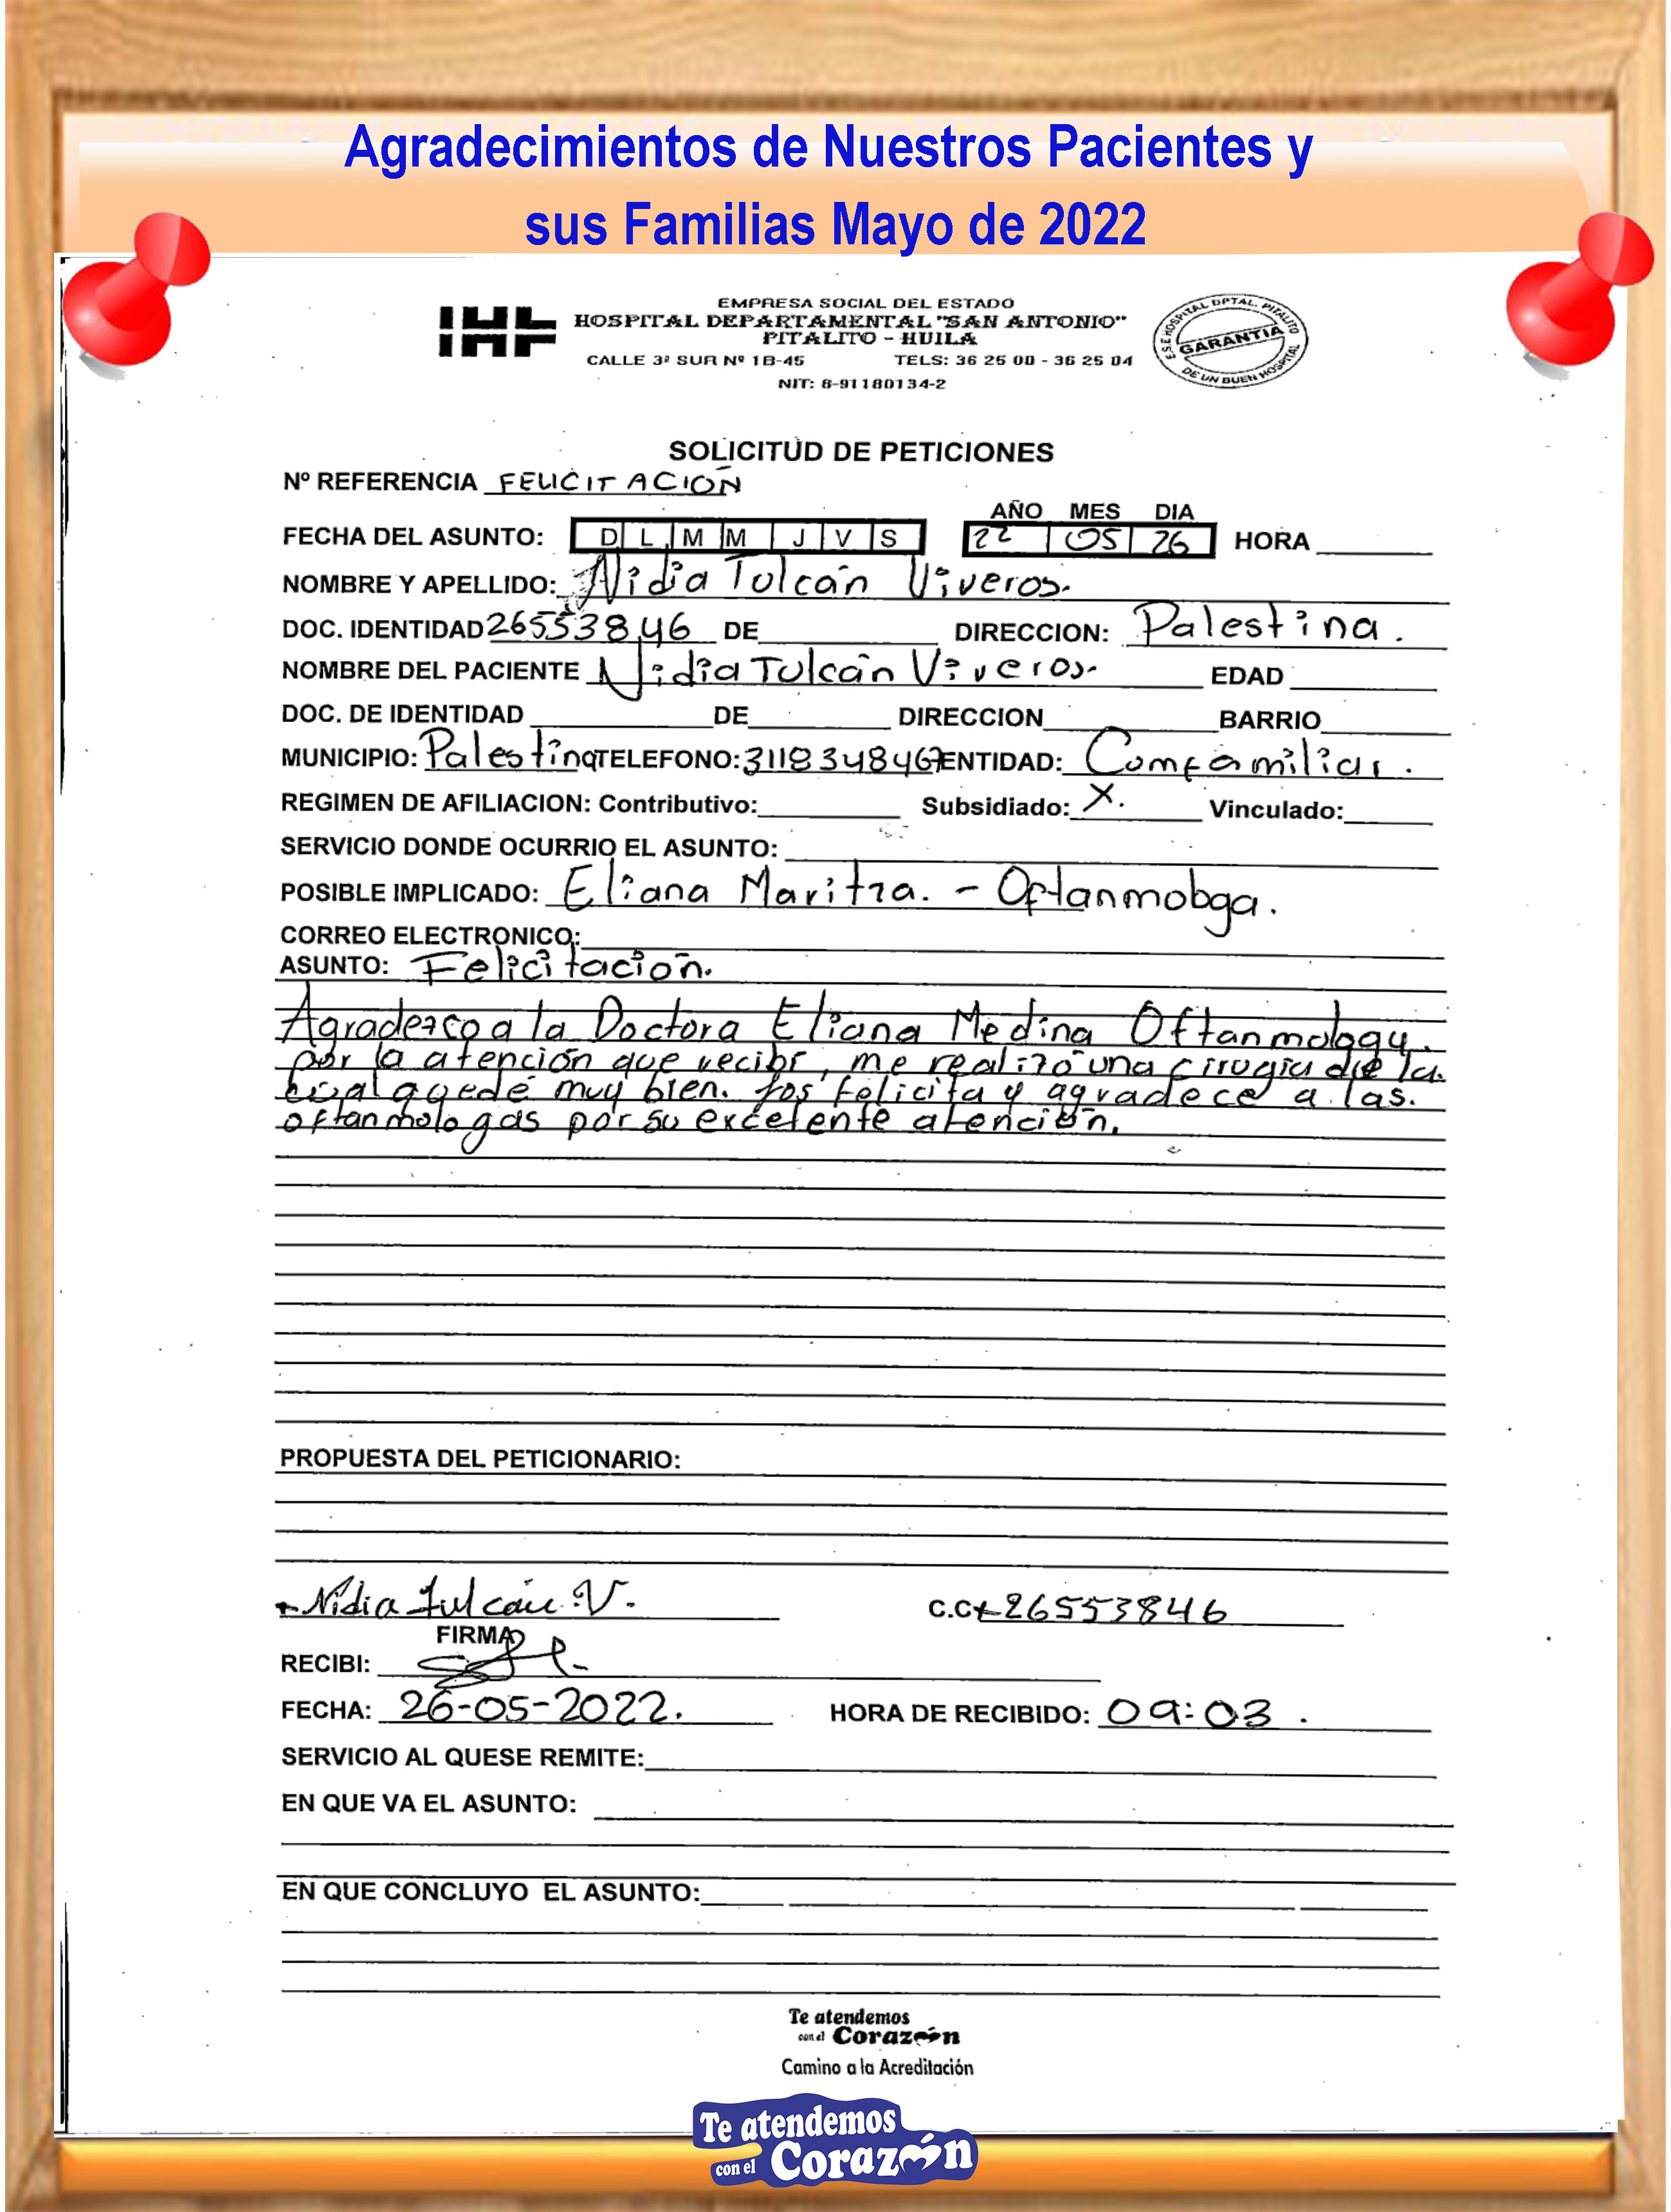 Agradecimientos de Nuestros Pacientes y
sus Familias Mayo de 2022
EMPRESA SOCIAL DEL ESTADO
HOSPITAL DEPARTAMENTAL "SAN ANTONIO"
PITALITO - HUILA
CALLE 3ª SUR Nº 1B-45 TELS: 36 25 00 - 36 25 04
NIT: 8-91180134-2
E.S.E HOSPITAL DPTAL. PITALITO
GARANTIA
DE UN BUEN HOSPITAL
SOLICITUD DE PETICIONES
Nº REFERENCIA FELICITACIÓN
AÑO MES DIA
FECHA DEL ASUNTO: D L M M J V S 22 05 26 HORA
NOMBRE Y APELLIDO: Nidia Tulcán Viveros.
DOC. IDENTIDAD 26553846 DE DIRECCION: Palestina.
NOMBRE DEL PACIENTE Nidia Tulcán Viveros. EDAD
DOC. DE IDENTIDAD DE DIRECCION BARRIO
MUNICIPIO: Palestina TELEFONO: 3118348467 ENTIDAD: Comfamiliar.
REGIMEN DE AFILIACION: Contributivo: Subsidiado: X. Vinculado:
SERVICIO DONDE OCURRIO EL ASUNTO:
POSIBLE IMPLICADO: Eliana Maritza. - Oftanmologa.
CORREO ELECTRONICO:
ASUNTO: Felicitación.
Agradezco a la Doctora Eliana Medina Oftanmologa.
por la atención que recibí, me realizó una cirugia de la
cual quedé muy bien. los felicita y agradece a las.
oftanmologas por su excelente atención.
PROPUESTA DEL PETICIONARIO:
Nidia Tulcán V. C.C 26553846
FIRMA
RECIBI:
FECHA: 26-05-2022. HORA DE RECIBIDO: 09:03.
SERVICIO AL QUESE REMITE:
EN QUE VA EL ASUNTO:
EN QUE CONCLUYO EL ASUNTO:
Te atendemos
con el Corazón
Camino a la Acreditación
Te atendemos
con el Corazón